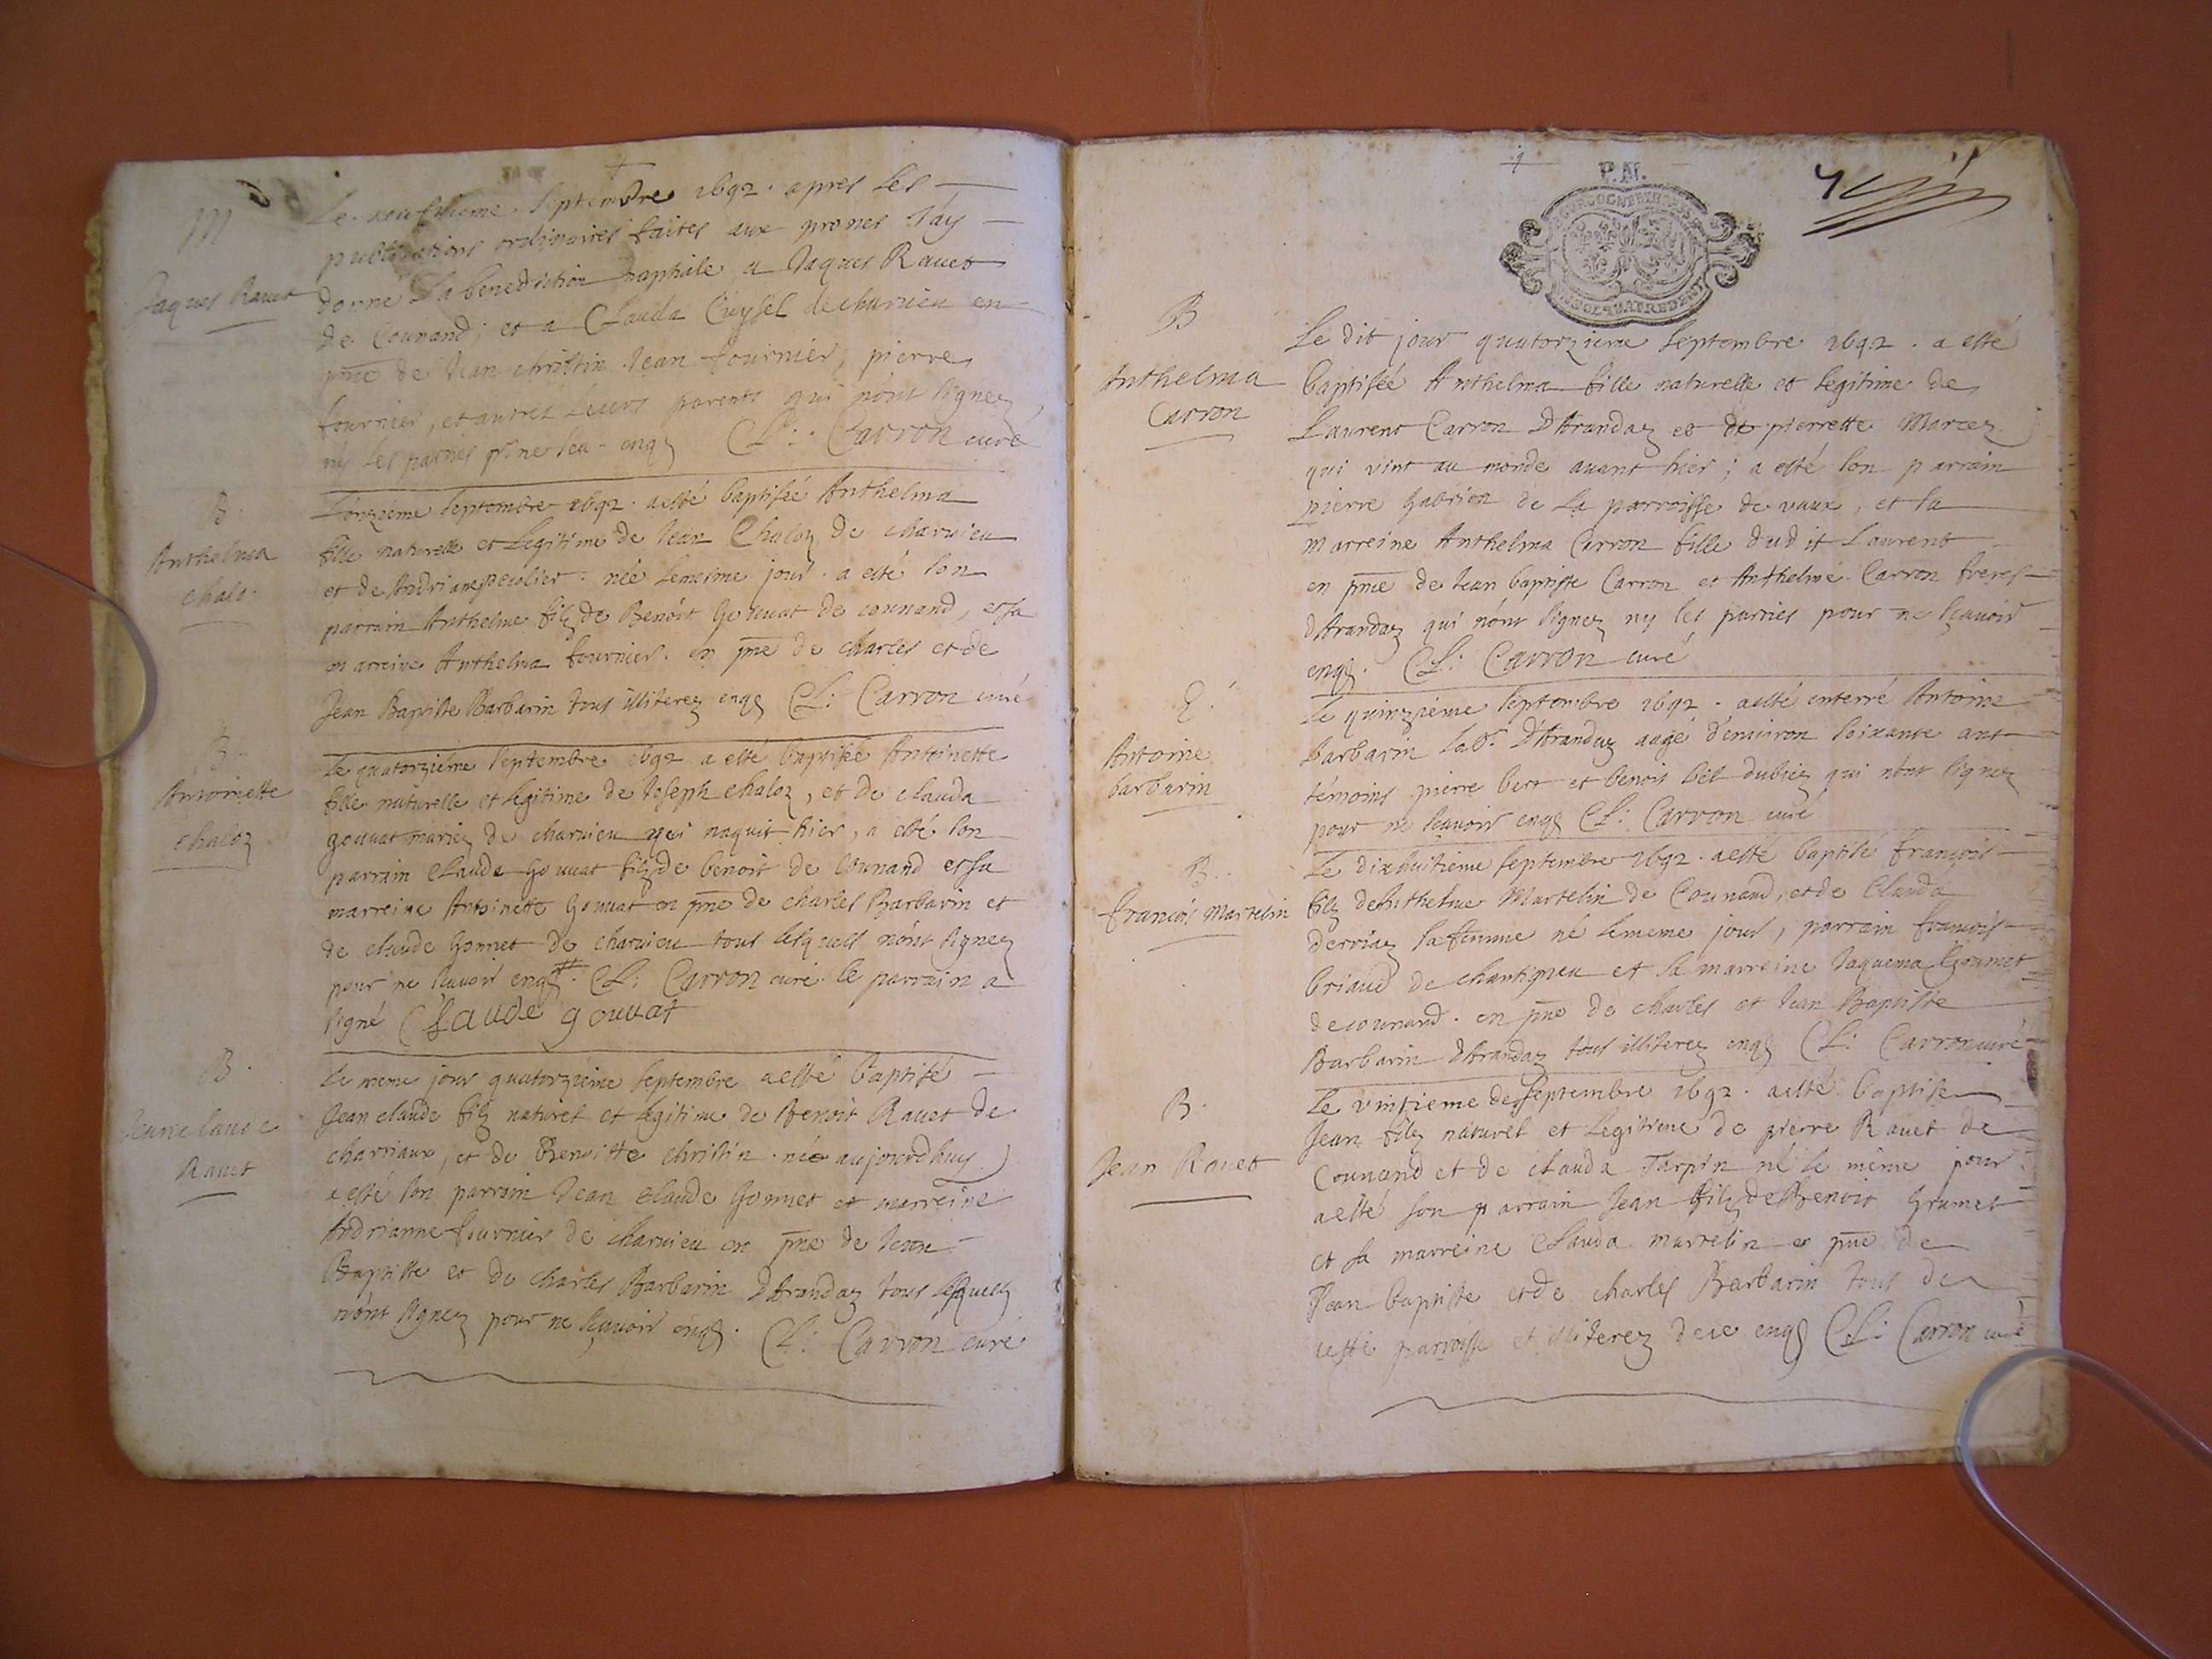 M
Jaques Ravet
Le neufvieme septembre 1692. apres les
publications ordinaires faites aux prones J'ay
donné La benediction nuptiale a Jaques Ravet
de Counand; et a Clauda Cuysel de charvieu en
pñce de Jean christin Jean fournier, pierre
fournier, et autres Leurs parents qui n'ont signez
ny les parties pr ne sca- enqs Cl: Carron curé
B.
Anthelma
chalo.
L'onzieme septembre 1692. a esté baptisée Anthelma
fille naturelle et Legitime de Jean Chaloz de charvieu
et de Andriane peculier. née le mesme jour. a esté son
parrain Anthelme filz de Benoît Gouvat de counand, et sa
marreine Anthelma fournier. en pñce de charles et de
Jean Baptiste Barbarin tous illiterez enqs Cl: Carron curé
B.
Antoinette
chaloz
Le quatorzième septembre 1692 a esté baptisée Antoinette
fille naturelle et Legitime de Joseph chaloz, et de clauda
gouvat mariez de charvieu qui naquit hier, a esté son
parrain Claude Gouvat filz de benoit de counand et sa
marreine Antoinette Gouvat en pñce de charles Barbarin et
de claude Gonnet de charvieu tous lesquels n'ont signez
pour ne sçavoir enqs #. Cl: Carron curé. le parrain a
signé Claude gouvat
B.
Jean claude
Ravet
Le meme jour quatorzième septembre a esté baptisé
Jean claude filz naturel et legitime de Benoit Ravet de
charviaux, et de Benoitte christin. née aujourdhuy
a esté son parrain Jean claude Gonnet et marreine
Andrianne fournier de charvieu en pñce de Jean
Baptiste et de charles Barbarin D'Arandaz tous lesquelz
n'ont signez pour ne sçavoir enqs. Cl: Carron curé
P. M.
B
Anthelma
Carron
Le dit jour quatorzieme septembre 1692. a esté
baptisée Anthelma fille naturelle et legitime de
Laurent Carron D'Arandaz et de pierrette Morcez
qui vint au monde avant hier; a esté son parrain
pierre Gabrion de La parroisse de vaux, et sa
marreine Anthelma Carron fille dudit Laurent
en pñce de Jean baptiste Carron et Anthelme Carron freres
d'Arandaz qui n'ont signez ny les parties pour ne sçavoir
enqs. Cl: Carron curé
E.
Antoine
barbarin
Le quinzième septembre 1692. a esté enterré Antoine
barbarin labr. D'Arandaz aagé d'environ soixante ans
témoins pierre bert et benoit bel dubiez qui n'ont signez
pour ne sçavoir enqs Cl: Carron curé
B.
francois Martelin
Le dixhuitieme septembre 1692. a esté baptisé françois
filz de Anthelme Martelin de Counand, et de Clauda
derviaz sa femme né le meme jour, parrain françois
briaud de chantigneu et sa marreine Jaquema Gonnet
de counand. en pñce de charles et Jean Baptiste
Barbarin D'Arandaz tous illiterez enqs Cl: Carron curé
B.
Jean Ravet
Le vintieme de septembre 1692. a esté baptise
Jean filz naturel et Legitime de pierre Ravet de
Counand et de clauda Tarpin né le même jour
a esté son parrain Jean filz de Benoit Grumet
et sa marreine Clauda martelin en pñce de
Jean baptiste et de charles Barbarin tous de
cette parroisse et illiterez de ce enqs Cl: Carron curé